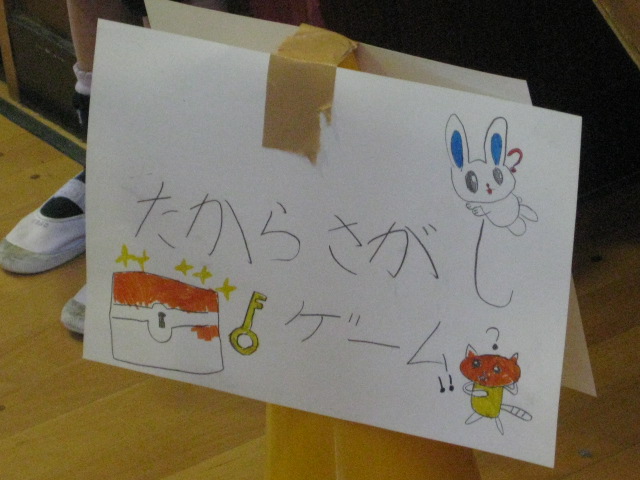 たからさがし
ゲーム!!
?
?